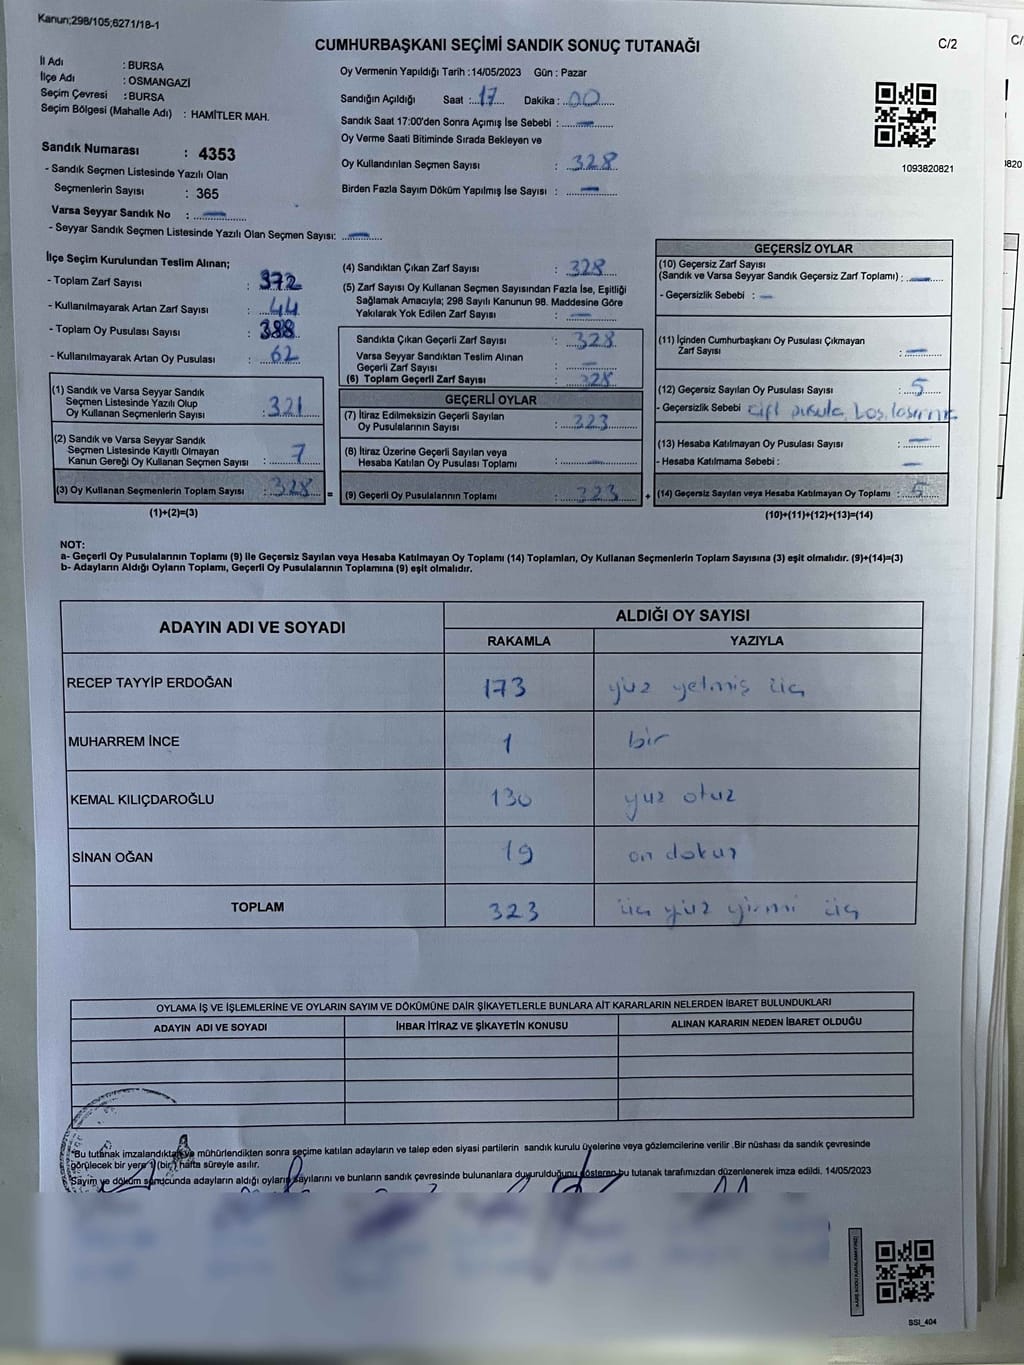 Kanun;298/105;6271/18-1
CUMHURBAŞKANI SEÇİMİ SANDIK SONUÇ TUTANAĞI
C/2
C/
İl Adı : BURSA
İlçe Adı : OSMANGAZİ
Seçim Çevresi : BURSA
Seçim Bölgesi (Mahalle Adı) : HAMİTLER MAH.
Sandık Numarası : 4353
- Sandık Seçmen Listesinde Yazılı Olan
Seçmenlerin Sayısı : 365
Varsa Seyyar Sandık No : —
- Seyyar Sandık Seçmen Listesinde Yazılı Olan Seçmen Sayısı: —
Oy Vermenin Yapıldığı Tarih :14/05/2023 Gün : Pazar
Sandığın Açıldığı Saat : 17 Dakika : 00
Sandık Saat 17:00'den Sonra Açımış İse Sebebi : —
Oy Verme Saati Bitiminde Sırada Bekleyen ve
Oy Kullandırılan Seçmen Sayısı : 328
Birden Fazla Sayım Döküm Yapılmış İse Sayısı : —
1093820821
820
İlçe Seçim Kurulundan Teslim Alınan;
- Toplam Zarf Sayısı : 372
- Kullanılmayarak Artan Zarf Sayısı : 44
- Toplam Oy Pusulası Sayısı : 388
- Kullanılmayarak Artan Oy Pusulası : 62
(1) Sandık ve Varsa Seyyar Sandık
Seçmen Listesinde Yazılı Olup
Oy Kullanan Seçmenlerin Sayısı : 321
(2) Sandık ve Varsa Seyyar Sandık
Seçmen Listesinde Kayıtlı Olmayan
Kanun Gereği Oy Kullanan Seçmen Sayısı : 7
(3) Oy Kullanan Seçmenlerin Toplam Sayısı : 328 =
(1)+(2)=(3)
(4) Sandıktan Çıkan Zarf Sayısı : 328
(5) Zarf Sayısı Oy Kullanan Seçmen Sayısından Fazla İse, Eşitliği
Sağlamak Amacıyla; 298 Sayılı Kanunun 98. Maddesine Göre
Yakılarak Yok Edilen Zarf Sayısı : —
Sandıkta Çıkan Geçerli Zarf Sayısı : 328
Varsa Seyyar Sandıktan Teslim Alınan
Geçerli Zarf Sayısı : —
(6) Toplam Geçerli Zarf Sayısı : 328
GEÇERLİ OYLAR
(7) İtiraz Edilmeksizin Geçerli Sayılan
Oy Pusulalarının Sayısı : 323
(8) İtiraz Üzerine Geçerli Sayılan veya
Hesaba Katılan Oy Pusulası Toplamı : —
(9) Geçerli Oy Pusulalarının Toplamı : 323 +
GEÇERSİZ OYLAR
(10) Geçersiz Zarf Sayısı
(Sandık ve Varsa Seyyar Sandık Geçersiz Zarf Toplamı) : —
- Geçersizlik Sebebi : —
(11) İçinden Cumhurbaşkanı Oy Pusulası Çıkmayan
Zarf Sayısı : —
(12) Geçersiz Sayılan Oy Pusulası Sayısı : 5
- Geçersizlik Sebebi çift pusula, boş,
(13) Hesaba Katılmayan Oy Pusulası Sayısı : —
- Hesaba Katılmama Sebebi : —
(14) Geçersiz Sayılan veya Hesaba Katılmayan Oy Toplamı : 5
(10)+(11)+(12)+(13)=(14)
NOT:
a- Geçerli Oy Pusulalarının Toplamı (9) ile Geçersiz Sayılan veya Hesaba Katılmayan Oy Toplamı (14) Toplamları, Oy Kullanan Seçmenlerin Toplam Sayısına (3) eşit olmalıdır. (9)+(14)=(3)
b- Adayların Aldığı Oyların Toplamı, Geçerli Oy Pusulalarının Toplamına (9) eşit olmalıdır.
ADAYIN ADI VE SOYADI
ALDIĞI OY SAYISI
RAKAMLA YAZIYLA
RECEP TAYYİP ERDOĞAN 173 yüz yetmiş üç
MUHARREM İNCE 1 bir
KEMAL KILIÇDAROĞLU 130 yüz otuz
SİNAN OĞAN 19 on dokuz
TOPLAM 323 üç yüz yirmi üç
OYLAMA İŞ VE İŞLEMLERİNE VE OYLARIN SAYIM VE DÖKÜMÜNE DAİR ŞİKAYETLERLE BUNLARA AİT KARARLARIN NELERDEN İBARET BULUNDUKLARI
ADAYIN ADI VE SOYADI İHBAR İTİRAZ VE ŞİKAYETİN KONUSU ALINAN KARARIN NEDEN İBARET OLDUĞU
*Bu tutanak imzalandıktan ve mühürlendikten sonra seçime katılan adayların ve talep eden siyasi partilerin sandık kurulu üyelerine veya gözlemcilerine verilir .Bir nüshası da sandık çevresinde
görülecek bir yere 1 (bir) hafta süreyle asılır.
Sayım ve döküm sonucunda adayların aldığı oyların sayılarını ve bunların sandık çevresinde bulunanlara duyurulduğunu gösteren bu tutanak tarafımızdan düzenlenerek imza edildi. 14/05/2023
SSI_404